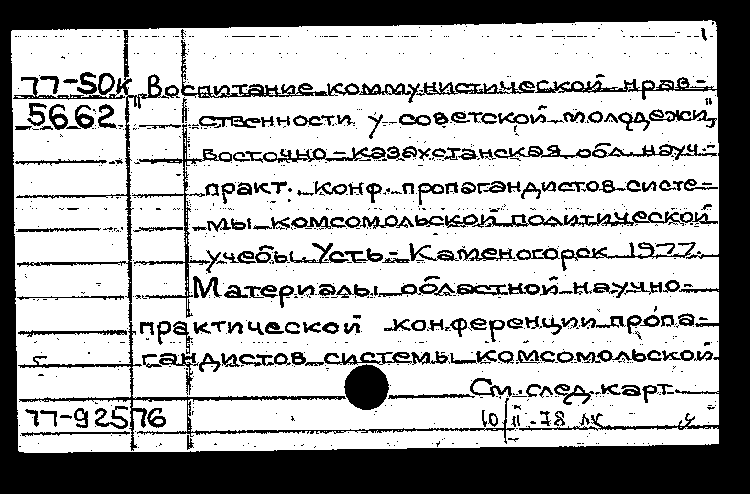 1
77-SOк Воспитание коммунистической нрав-
5662 "ственности у советской молодежи",
восточно-казахстанская обл. науч.-
практ. конф. пропагандистов систе-
мы комсомольской политической
учебы. Усть-Каменогорск 1977.
Материалы областной научно-
практической конференции пропа-
гандистов системы комсомольской
См. след. карт.
77-92576 10/II-78